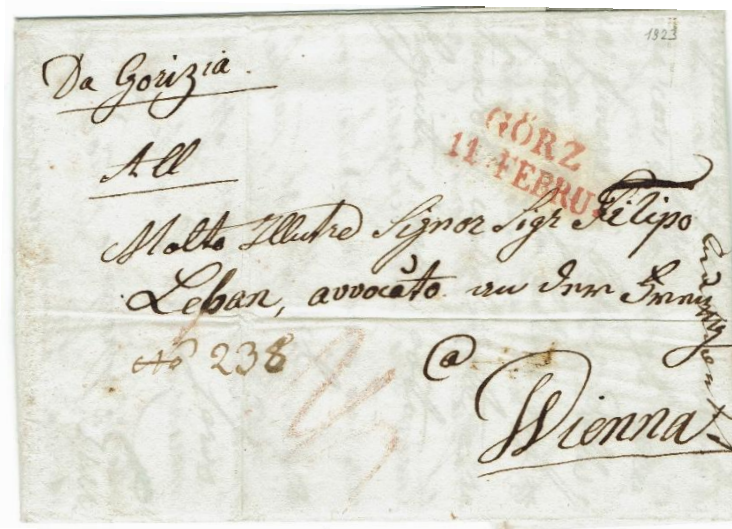 1823
Da Gorizia
GÖRZ
11. FEBRU
All
Molto Illustre Signor Sigr Filipo
Leban, avvocato an der
No 238
@
Wienna